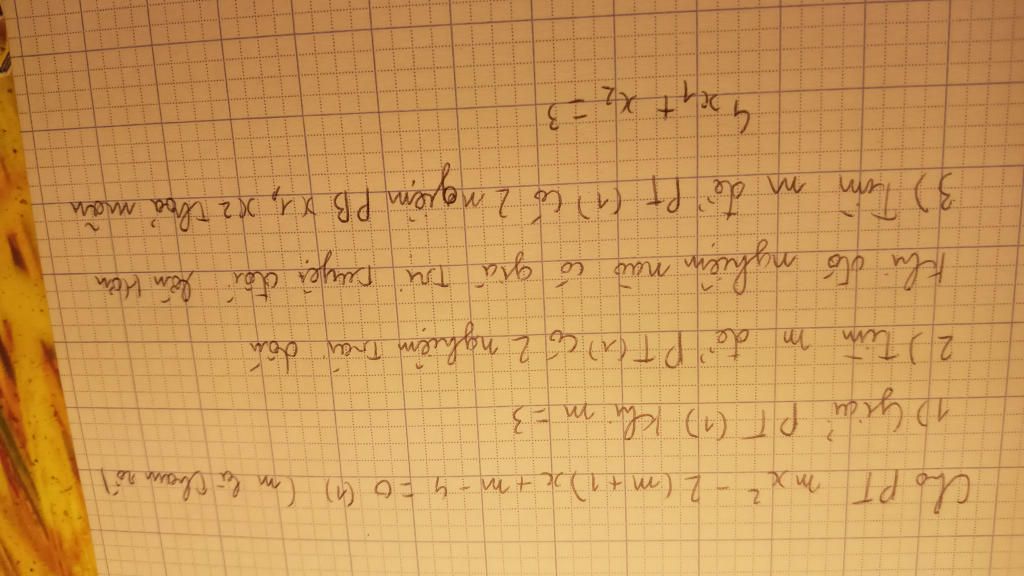 Cho PT mx² - 2(m+1)x + m - 4 = 0 (1) (m là tham số)
1) Giải PT (1) khi m = 3
2) Tìm m để PT (1) có 2 nghiệm trái dấu
khi đó nghiệm nào có giá trị tuyệt đối lớn hơn
3) Tìm m để PT (1) có 2 nghiệm PB x1, x2 thoả mãn
4x₁ + x₂ = 3